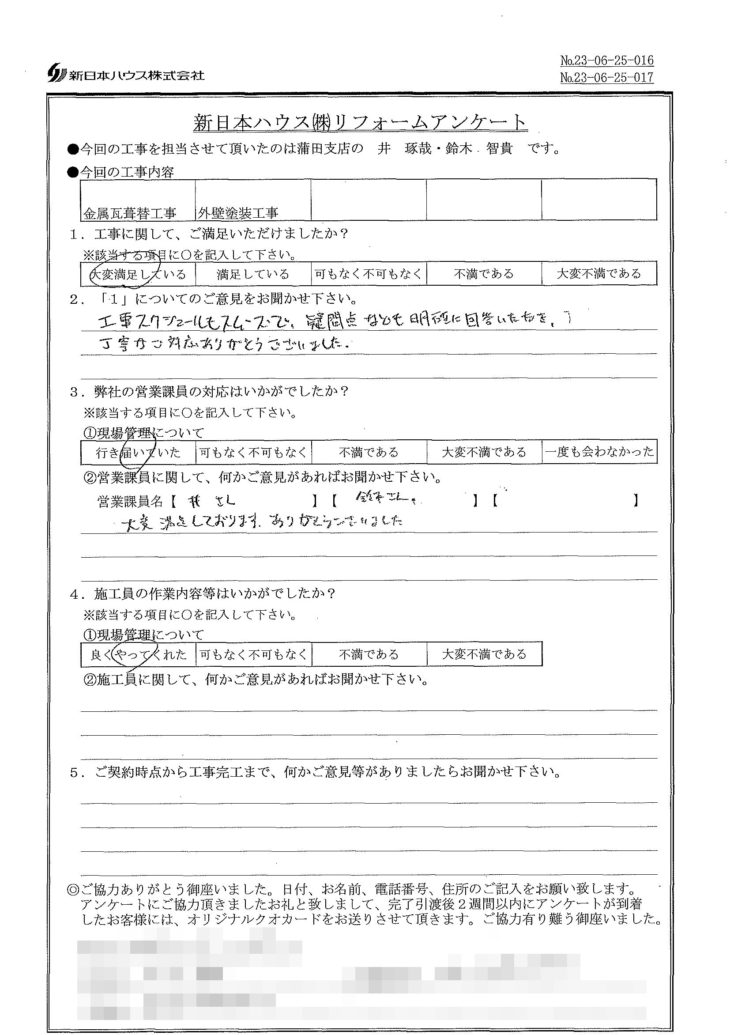 新日本ハウス株式会社
№23-06-25-016
№23-06-25-017
新日本ハウス㈱リフォームアンケート
●今回の工事を担当させて頂いたのは蒲田支店の 井 琢哉・鈴木 智貴 です。
●今回の工事内容
金属瓦葺替工事 外壁塗装工事
1．工事に関して、ご満足いただけましたか？
※該当する項目に○を記入して下さい。
大変満足している 満足している 可もなく不可もなく 不満である 大変不満である
2．「1」についてのご意見をお聞かせ下さい。
工事スケジュールもスムーズで、疑問点なども明確に回答いただき、
丁寧なご対応ありがとうございました。
3．弊社の営業課員の対応はいかがでしたか？
※該当する項目に○を記入して下さい。
①現場管理について
行き届いていた 可もなく不可もなく 不満である 大変不満である 一度も会わなかった
②営業課員に関して、何かご意見があればお聞かせ下さい。
営業課員名【 井さん 】【 鈴木さん。 】【 】
大変満足しております。ありがとうございました
4．施工員の作業内容等はいかがでしたか？
※該当する項目に○を記入して下さい。
①現場管理について
良くやってくれた 可もなく不可もなく 不満である 大変不満である
②施工員に関して、何かご意見があればお聞かせ下さい。
5．ご契約時点から工事完工まで、何かご意見等がありましたらお聞かせ下さい。
◎ご協力ありがとう御座いました。日付、お名前、電話番号、住所のご記入をお願い致します。
アンケートにご協力頂きましたお礼と致しまして、完了引渡後２週間以内にアンケートが到着
したお客様には、オリジナルクオカードをお送りさせて頂きます。ご協力有り難う御座いました。